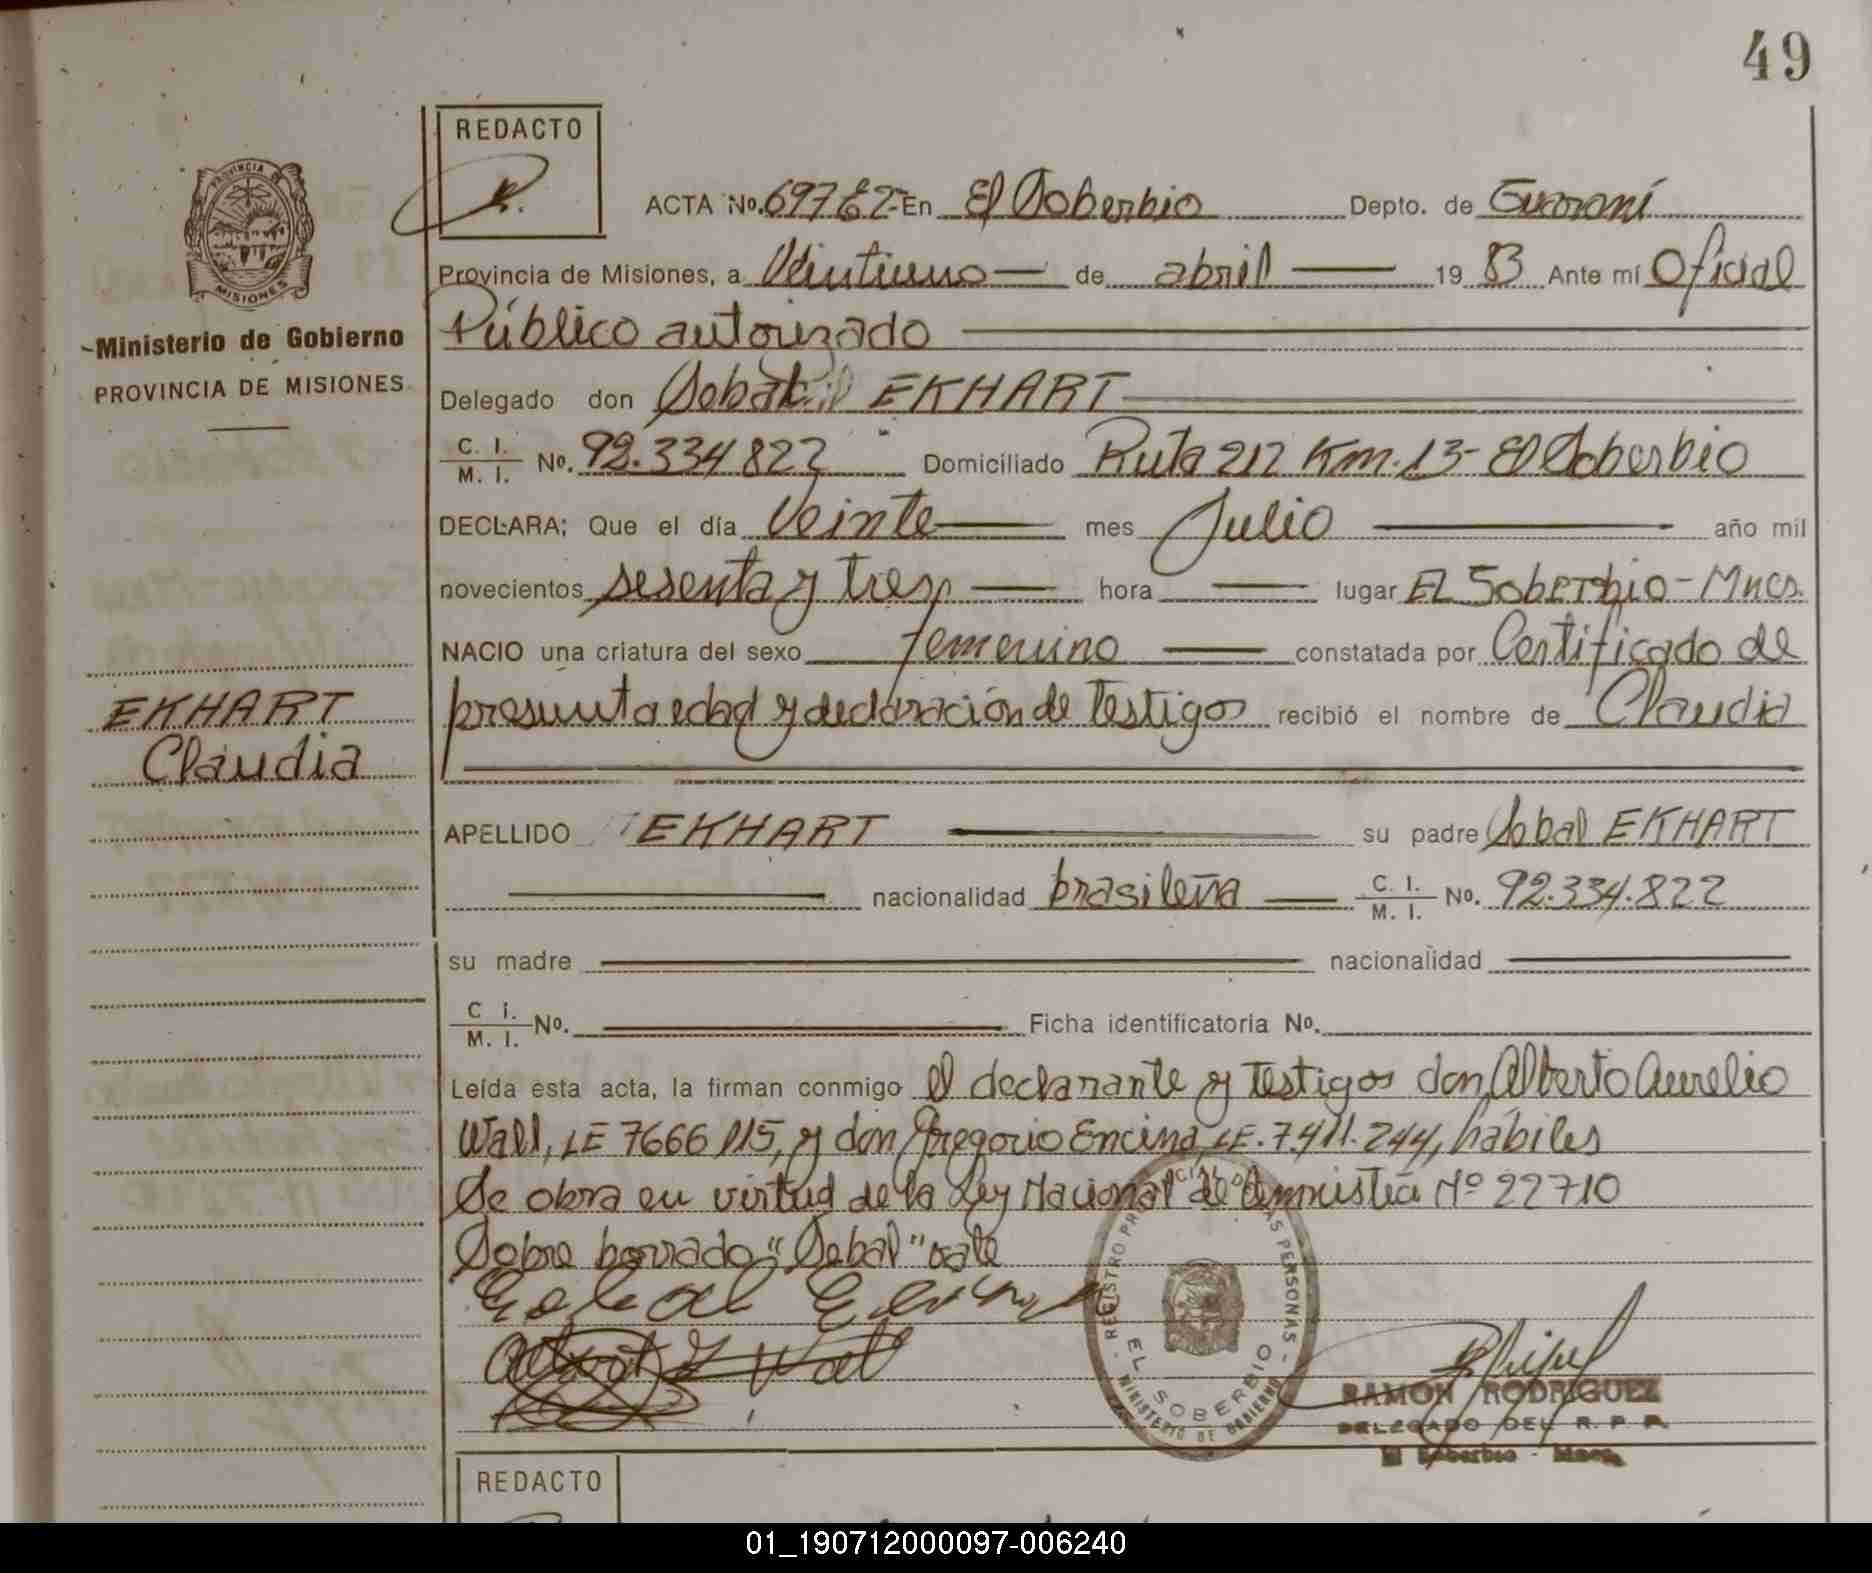 49
REDACTO
PROVINCIA DE
MISIONES
ACTA No. 697 E2- En El Soberbio Depto. de Guaraní
Provincia de Misiones, a Veintiuno de abril 19 83 Ante mí Oficial
Público autorizado
Ministerio de Gobierno
PROVINCIA DE MISIONES
Delegado don Sobal EKHART
C. I. M. I. No. 92.334822 Domiciliado Ruta 212 Km. 13- El Soberbio
DECLARA; Que el día Veinte mes Julio año mil
novecientos sesenta y tres hora lugar EL Soberbio - Mnes.
NACIO una criatura del sexo femenino constatada por Certificado de
presunta edad y declaración de testigos recibió el nombre de Claudia
EKHART
Claudia
APELLIDO EKHART su padre Sobal EKHART
nacionalidad brasileña C. I. M. I. No. 92.334.822
su madre nacionalidad
C I. M. I. No. Ficha identificatoria No.
Leída esta acta, la firman conmigo el declarante y testigos don Alberto Aurelio
Wall, LE 7666115, y don Gregorio Encina, LE. 7.411.244, hábiles
Se obra en virtud de la Ley Nacional de Amnistía Nº 22710
Sobre borrado "Sobal" vale
REGISTRO PROVINCIAL DE LAS PERSONAS
EL SOBERBIO
MINISTERIO DE GOBIERNO
RAMON RODRIGUEZ
DELEGADO DEL R. P. P.
El Soberbio - Mnes.
REDACTO
01_190712000097-006240